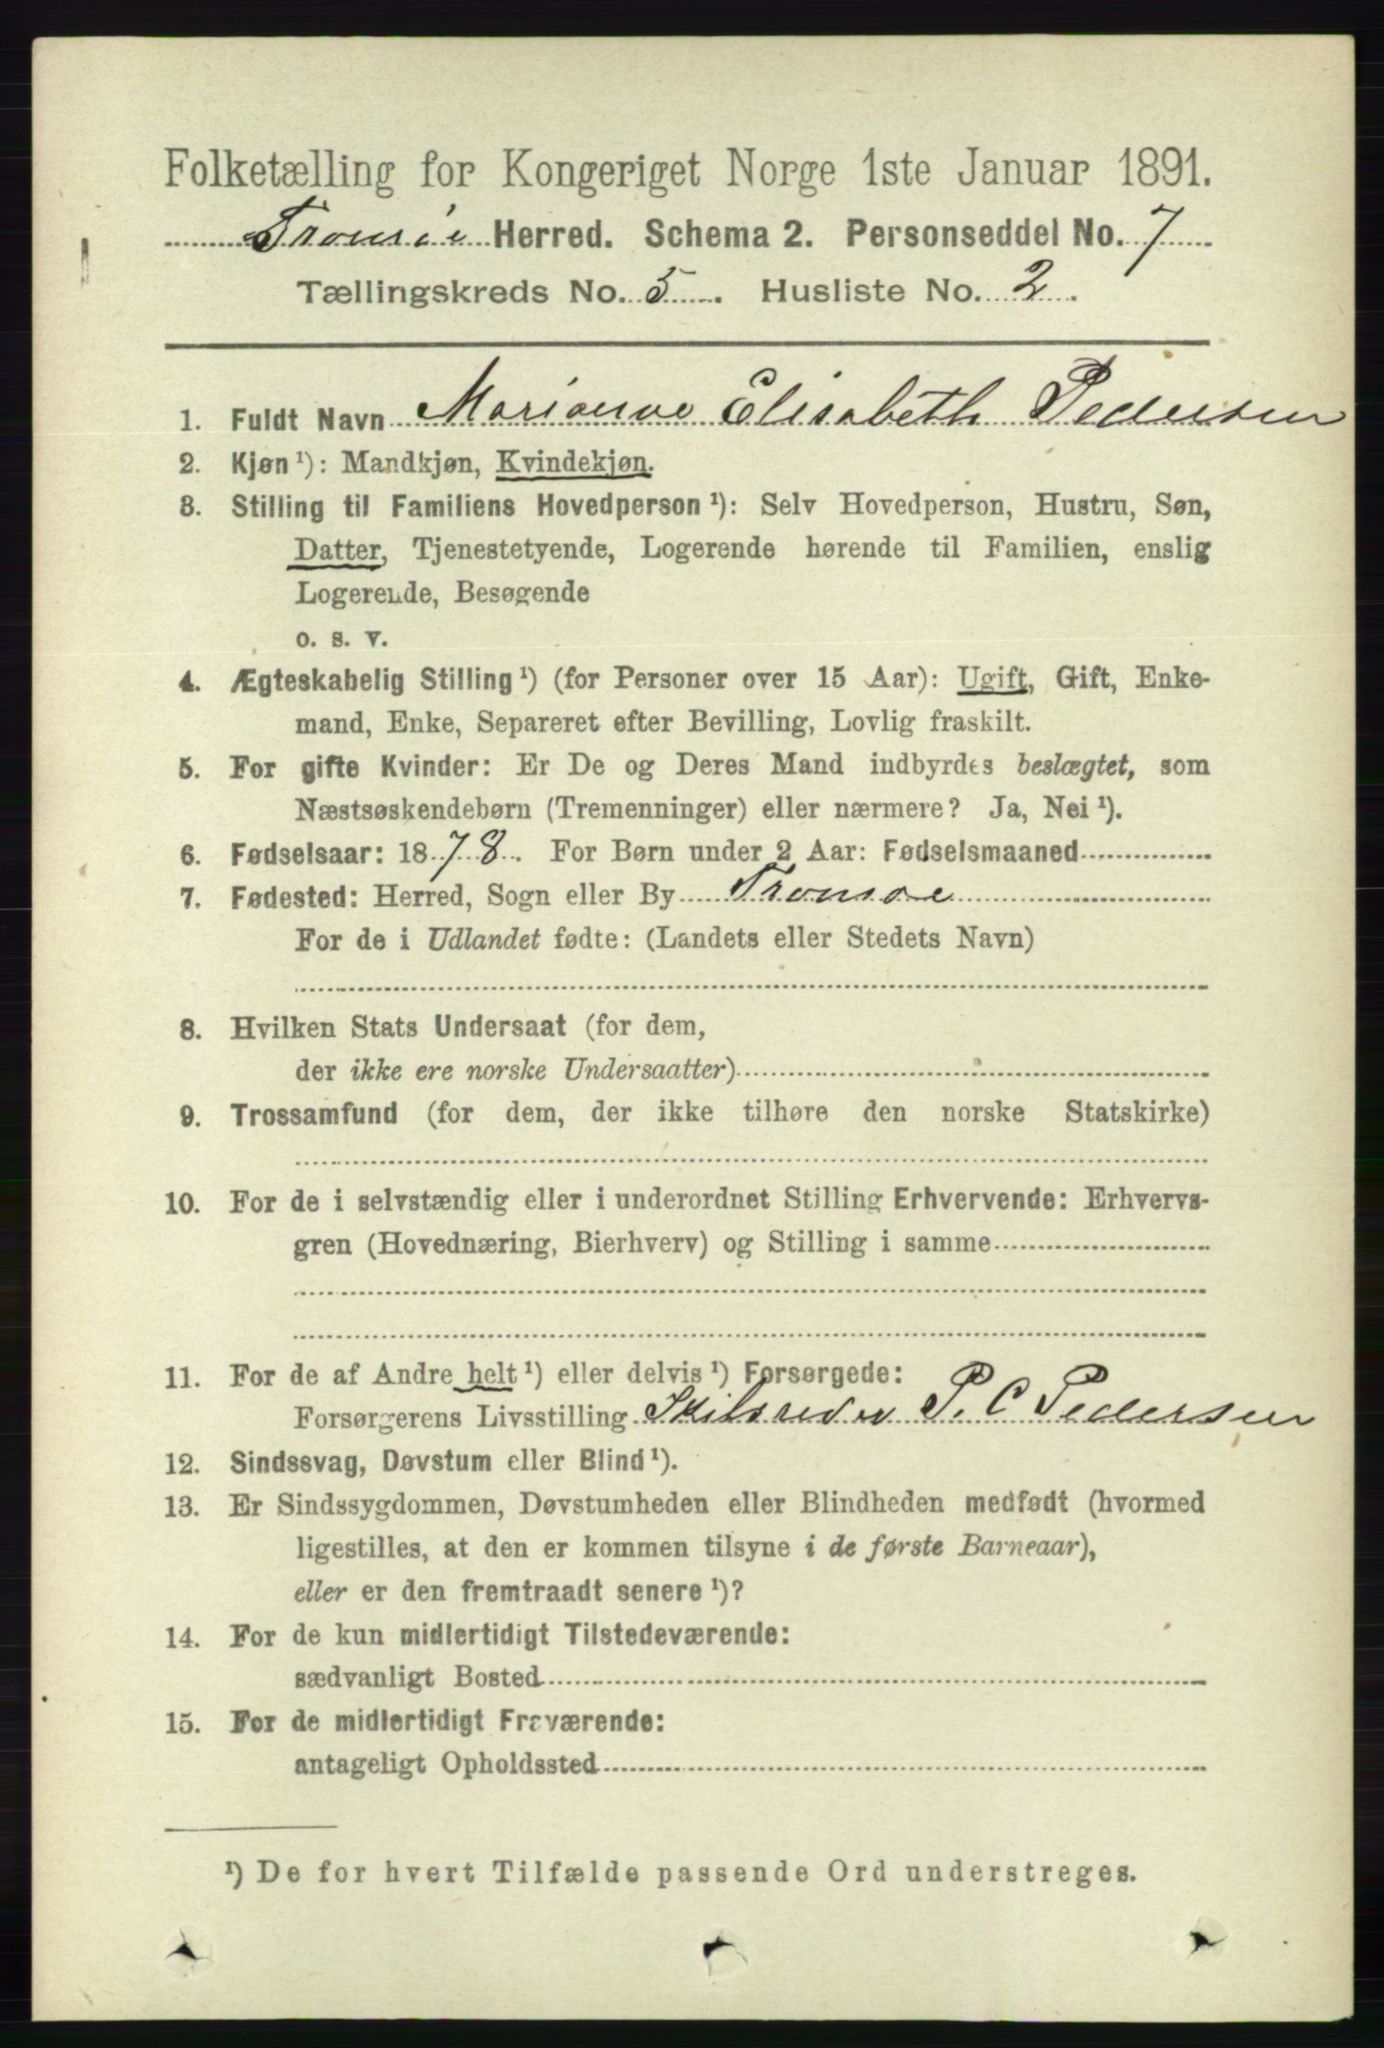 Folketælling for Kongeriget Norge 1ste Januar 1891.
Tromsøe Herred. Schema 2. Personseddel No. 7
Tællingskreds No. 5. Husliste No. 2.
1. Fuldt Navn Marianne Elisabeth Pedersen
2. Kjøn ¹): Mandkjøn, Kvindekjøn.
3. Stilling til Familiens Hovedperson ¹): Selv Hovedperson, Hustru, Søn,
Datter, Tjenestetyende, Logerende hørende til Familien, enslig
Logerende, Besøgende
o. s. v.
4. Ægteskabelig Stilling ¹) (for Personer over 15 Aar): Ugift, Gift, Enke-
mand, Enke, Separeret efter Bevilling, Lovlig fraskilt.
5. For gifte Kvinder: Er De og Deres Mand indbyrdes beslægtet, som
Næstsøskendebørn (Tremenninger) eller nærmere? Ja, Nei ¹).
6. Fødselsaar: 1878. For Børn under 2 Aar: Fødselsmaaned
7. Fødested: Herred, Sogn eller By Tromsøe
For de i Udlandet fødte: (Landets eller Stedets Navn)
8. Hvilken Stats Undersaat (for dem,
der ikke ere norske Undersaatter)
9. Trossamfund (for dem, der ikke tilhøre den norske Statskirke)
10. For de i selvstændig eller i underordnet Stilling Erhvervende: Erhvervs-
gren (Hovednæring, Bierhverv) og Stilling i samme
11. For de af Andre helt ¹) eller delvis ¹) Forsørgede:
Forsørgerens Livsstilling P. C Pedersen
12. Sindssvag, Døvstum eller Blind ¹).
13. Er Sindssygdommen, Døvstumheden eller Blindheden medfødt (hvormed
ligestilles, at den er kommen tilsyne i de første Barneaar),
eller er den fremtraadt senere ¹)?
14. For de kun midlertidigt Tilstedeværende:
sædvanligt Bosted
15. For de midlertidigt Fraværende:
antageligt Opholdssted
¹) De for hvert Tilfælde passende Ord understreges.